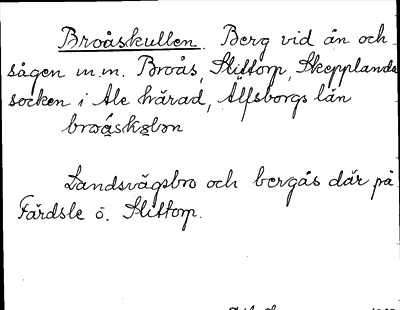 Broåskullen. Berg vid ån och
sågen m.m. Broås, Slittorp, Skepplanda
socken i Ale härad, Älfsborgs län
broåskɞlən
Landsvägsbro och bergås där på
Färdsle ö. Slittorp.